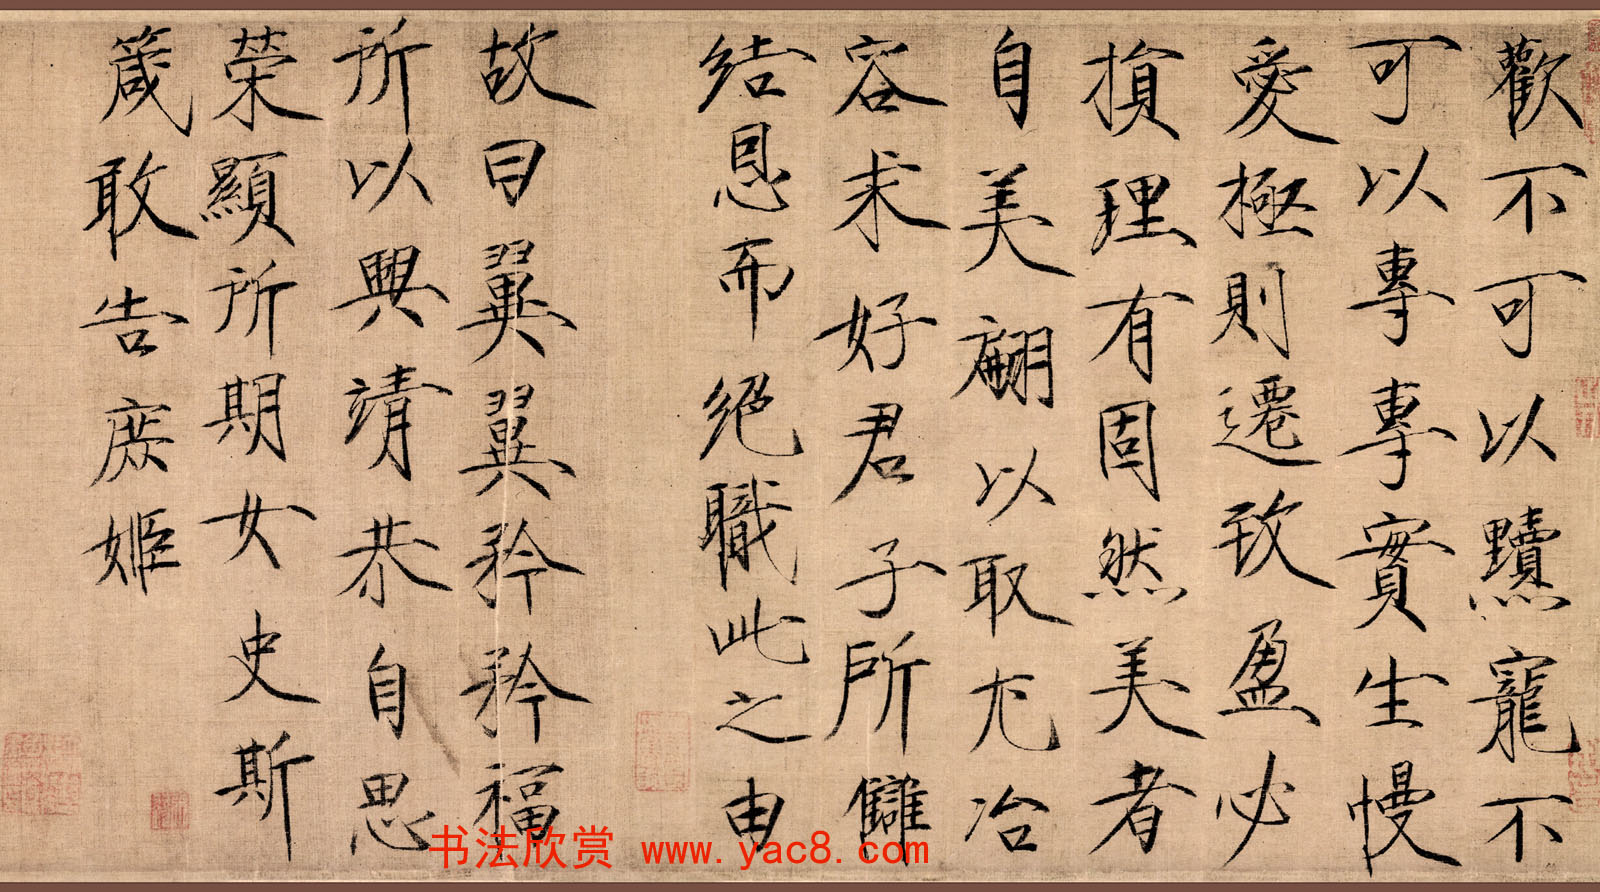 歡不可以黷寵不
可以專專實生慢
愛極則遷致盈必
損理有固然美者
自美翩以取尤冶
容求好君子所讎
結恩而絕職此之由
故曰翼翼矜矜福
所以興靖恭自思
榮顯所期女史斯
箴敢告庶姬
书法欣赏 www.yac8.com